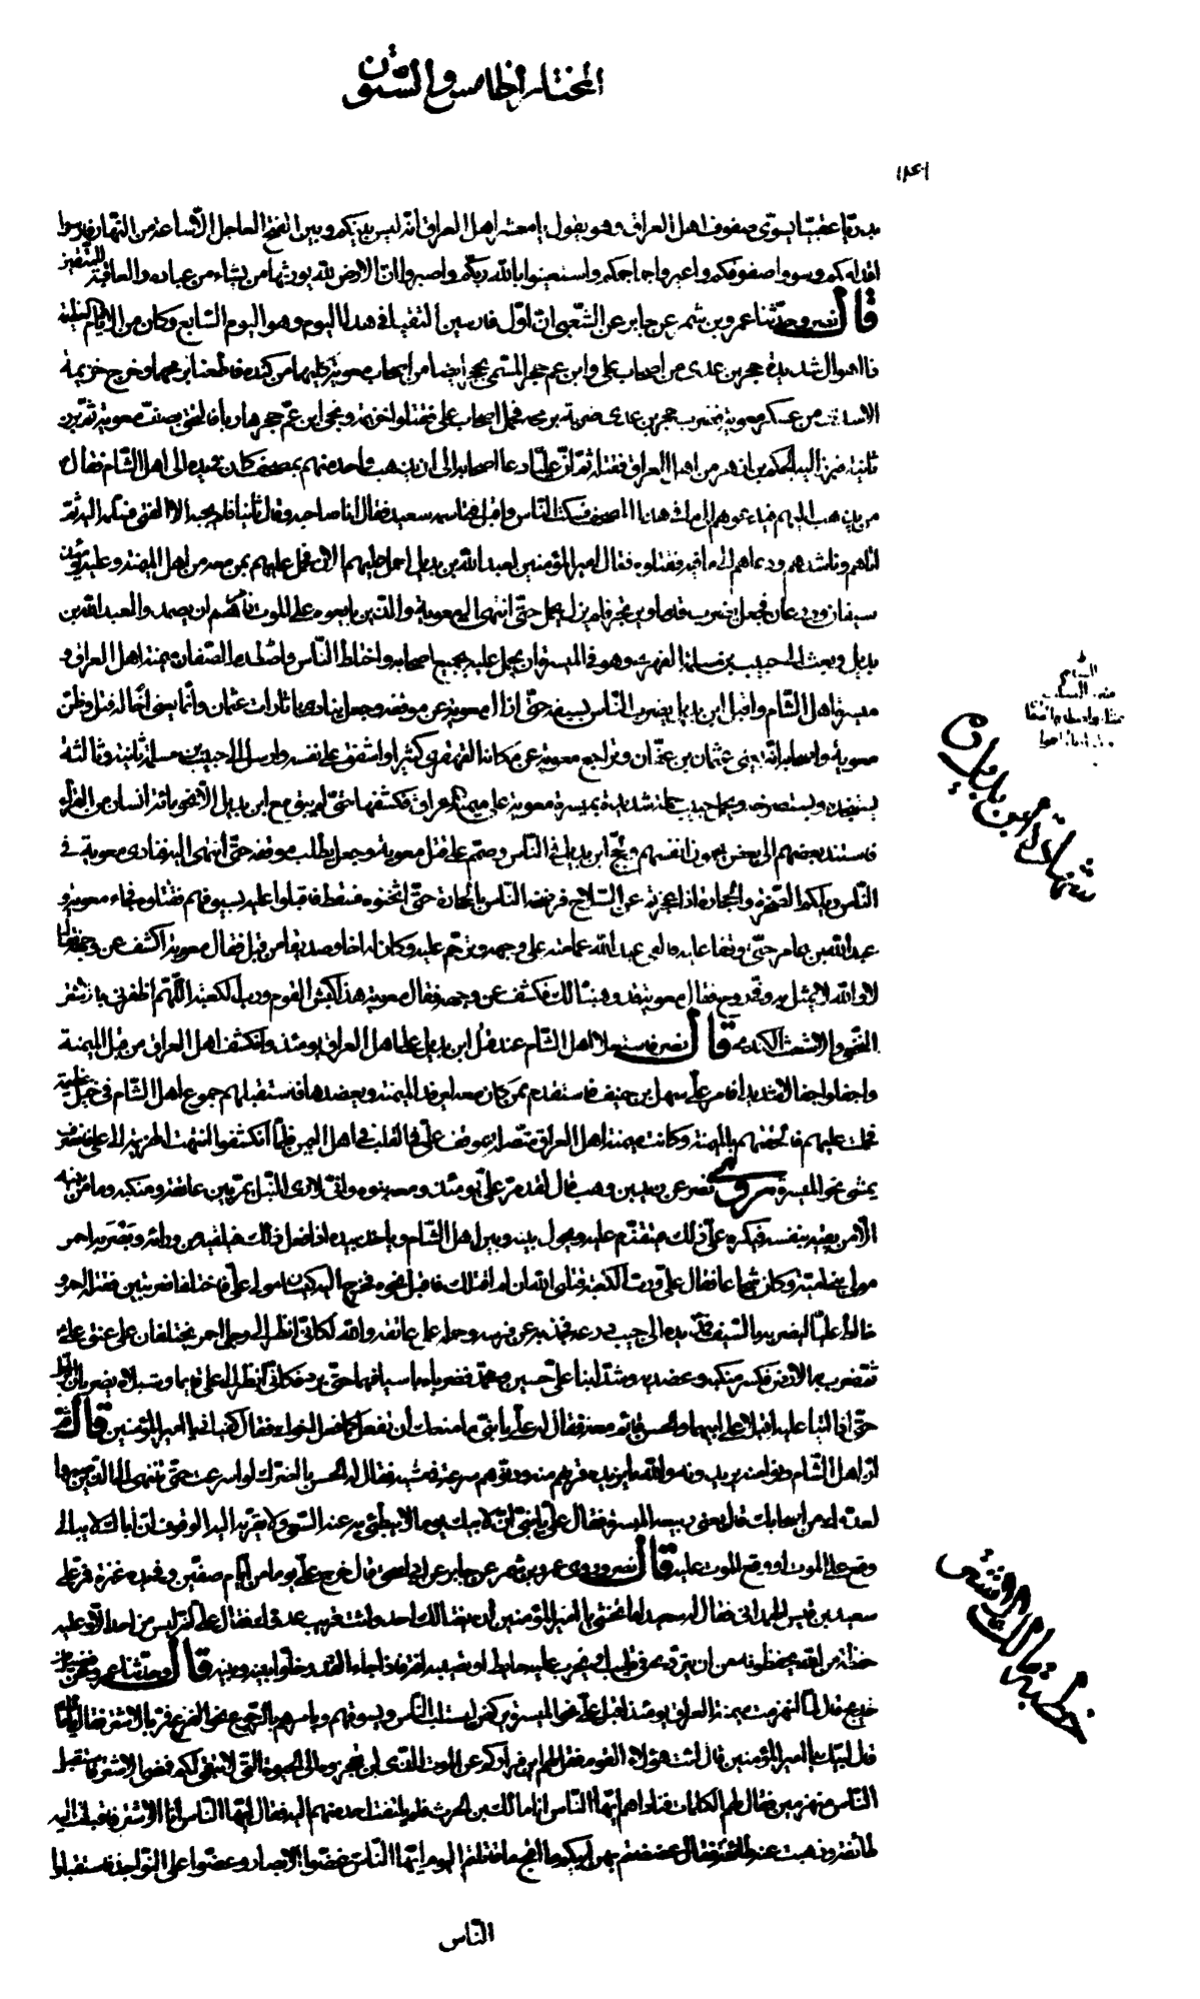 المختار الخامس والستون
بيده قناعته ليسوى صفوف اهل العراق وهو يقول يا معشر اهل العراق انه ليس بينكم وبين الفتح العاجل الا ساعة من النهار فارسوا
اقدامكم وسووا صفوفكم واعيروا جماجمكم واستعينوا بالله ربكم واصبروا ان الارض لله يورثها من يشاء من عباده والعاقبة للمتقين
قال نصر وحدثنا عمرو بن شمر عن جابر عن الشعبى ان اول فارسين التقيا فى هذا اليوم وهو اليوم السابع وكان من الايام العظيمة
ذا اهوال شديدة حجر بن عدى من اصحاب على وابن عم حجر المسمى بحجر ايضا من اصحاب معوية كلاهما من كندة فاطعنا برمحيهما وخرج خزيمة
الاسدى من عسكر معوية فضرب حجر بن عدى ضربة برمحه فحمل اصحاب على فقتلوا خزيمة ونجى ابن عم حجر هاربا فالتحق بصف معوية ثم برز
ثانية فبرز اليه الحكم بن ازهر من اهل العراق فقتله ثم ان عليا دعا اصحابه الى ان يذهب واحد منهم بمصحف كان فى يده الى اهل الشام فقال
من يذهب اليهم فيدعوهم الى ما فى هذا المصحف فسكت الناس واقبل فتى اسمه سعيد فقال انا صاحبه وقال ثانيا فلم يجبه الا الفتى فسلمه اليه ثم
اتاهم وناشدهم ودعاهم الى ما فيه فقتلوه فقال امير المؤمنين لعبد الله بن بديل احمل عليهم الان فحمل عليهم بمن معه من اهل الميمنة وعليه يومئذ
سيفان ودرعان فجعل يضرب قدما ويرتجز فلم يزل يحمل حتى انتهى الى معوية والذين بايعوه على الموت فامرهم ان يصمدوا لعبد الله بن
بديل وبعث الى حبيب بن مسلمة الفهرى وهو فى الميسرة ان يحمل عليه بجميع اصحابه واختلط الناس واضطرم الصفان ميمنة اهل العراق و
ميسرة اهل الشام واقبل ابن بديل يضرب الناس بسيفه حتى ازال معوية عن موقفه وجعل ينادى يا ثارات عثمان وانما يعنى اخا له قتل وظن
معوية واصحابه انه يعنى عثمان بن عفان وتراجع معوية عن مكانه القهقرى كثيرا واشفق على نفسه وارسل الى حبيب بن مسلمة ثانية وثالثة
يستنجده ويستصرخه ويحمل حبيب حملة شديدة بميسرة معوية على ميمنة العراق فكشفها حتى لم يبق مع ابن بديل الا نحو مائة انسان من القراء
فاستند بعضهم الى بعض يحمون انفسهم ولج ابن بديل فى الناس وصمم على قتل معوية وجعل يطلب موقفه حتى انتهى اليه فنادى معوية فى
الناس ويلكم الصخر والحجارة اذا عجزتم عن السلاح فرضخه الناس بالحجارة حتى اثخنوه فسقط فاقبلوا عليه بسيوفهم فقتلوه فجاء معوية و
عبد الله بن عامر حتى وقفا عليه فالقى عبد الله عمامته على وجهه وترحم عليه وكان له اخا وصديقا من قبل فقال معوية اكشف عن وجهه فقال
لا والله لا يمثل به وفى روح فقال معوية قد وهبناه لك فكشف عن وجهه فقال معوية هذا كبش القوم ورب الكعبة اللهم اظفرنى بالاشتر
النخعى والاشعث الكندى قال نصر فاستعلا اهل الشام عند قتل ابن بديل على اهل العراق يومئذ وانكشف اهل العراق من قبل الميمنة
واجفلوا اجفالا شديدا فامر على سهل بن حنيف فاستقدم بمن كان معه ليرفد الميمنة ويعضدها فاستقبلهم جموع اهل الشام فى خيل عظيمة
فحملت عليهم فالحقتهم بالميمنة وكانت ميمنة اهل العراق متصلة بموقف على فى القلب فى اهل اليمن فلما انكشفوا انتهت الهزيمة الى على فانصرف
يمشى نحو الميسرة مروى نصر عن زيد بن وهب قال لقد مر على يومئذ ومعه بنوه وانى لارى النبل يمر بين عاتقه ومنكبيه وما من بنيه
الا من يقيه بنفسه فيكره على ذلك فيتقدم عليه ويحول بينه وبين اهل الشام وياخذ بيده اذا فعل ذلك فيلقيه من ورائه وبصر به احمر
مولى بنى امية وكان شجاعا فقال على ورب الكعبة قتلنى الله ان لم اقتلك فاقبل نحوه فخرج اليه كيسان مولى على فاختلفا ضربتين فقتله احمر و
خالط عليا ليضربه بالسيف فمد يده الى جيب درعه فجذبه عن فرسه وحمله على عاتقه والله لكانى انظر الى رجلى احمر يختلفان على عنق على
ثم ضرب به الارض فكسر منكبه وعضديه وشد ابنا على حسين ومحمد فضرباه باسيافهما حتى برد فكانى انظر الى على قائما وشبلاه يضربان الرجل
حتى اذا اتيا عليه اقبلا على ابيهما والحسن قائم معه فقال له على يا بنى ما منعك ان تفعل كما فعل اخواك فقال كفيانى يا امير المؤمنين قال ثم
ان اهل الشام دنوا منه يريدونه والله ما يزيده قربهم منه ودنوهم سرعة فى مشيه فقال له الحسن ما ضرك لو اسرعت حتى تنتهى الى الذين صبروا
لعدوك من اصحابك قال يعنى ربيعة الميسرة فقال على يا بنى ان لابيك يوما لا يبطئ به عنه السعى ولا يقربه اليه الوقوف ان اباك لا يبالى
وقع على الموت او وقع الموت عليه قال نصر وروى عمرو بن شمر عن جابر عن ابى اسحق قال خرج على يوما من ايام صفين وفى يده عنزة فمر على
سعيد بن قيس الهمدانى فقال له سعيد اما تخشى يا امير المؤمنين ان يغتالك احد وانت قريب عدوك فقال على انه ليس من احد الا وعليه
حفظة من الله يحفظونه من ان يتردى فى قليب او يخرب عليه حايط او تصيبه افة فاذا جاء القدر خلوا بينه وبينه قال وحدثنا عمرو عن فضيل بن
خديج قال لما انهزمت ميمنة العراق يومئذ اقبل على نحو الميسرة يركض يستثيب الناس ويستوقفهم ويامرهم بالرجوع نحو الفزع فمر بالاشتر فقال يا مالك
قال لبيك يا امير المؤمنين قال ائت هؤلاء القوم فقل لهم اين فراركم عن الموت الذى لن تعجزوه الى الحيوة التى لا تبقى لكم فمضى الاشتر فاستقبل
الناس منهزمين فقال لهم الكلمات فناداهم ايها الناس انا مالك بن الحرث فلم يلتفت احد منهم اليه فقال ايها الناس انا الاشتر فاقبلت اليه
طائفة وذهبت عنه طائفة فقال عضضتم بهن ابيكم ما اقبح ما قاتلتم اليوم ايها الناس غضوا الابصار وعضوا على النواجذ فاستقبلوا
شهادة ابن بديل ره
خطبة مالك الاشتر
الناس